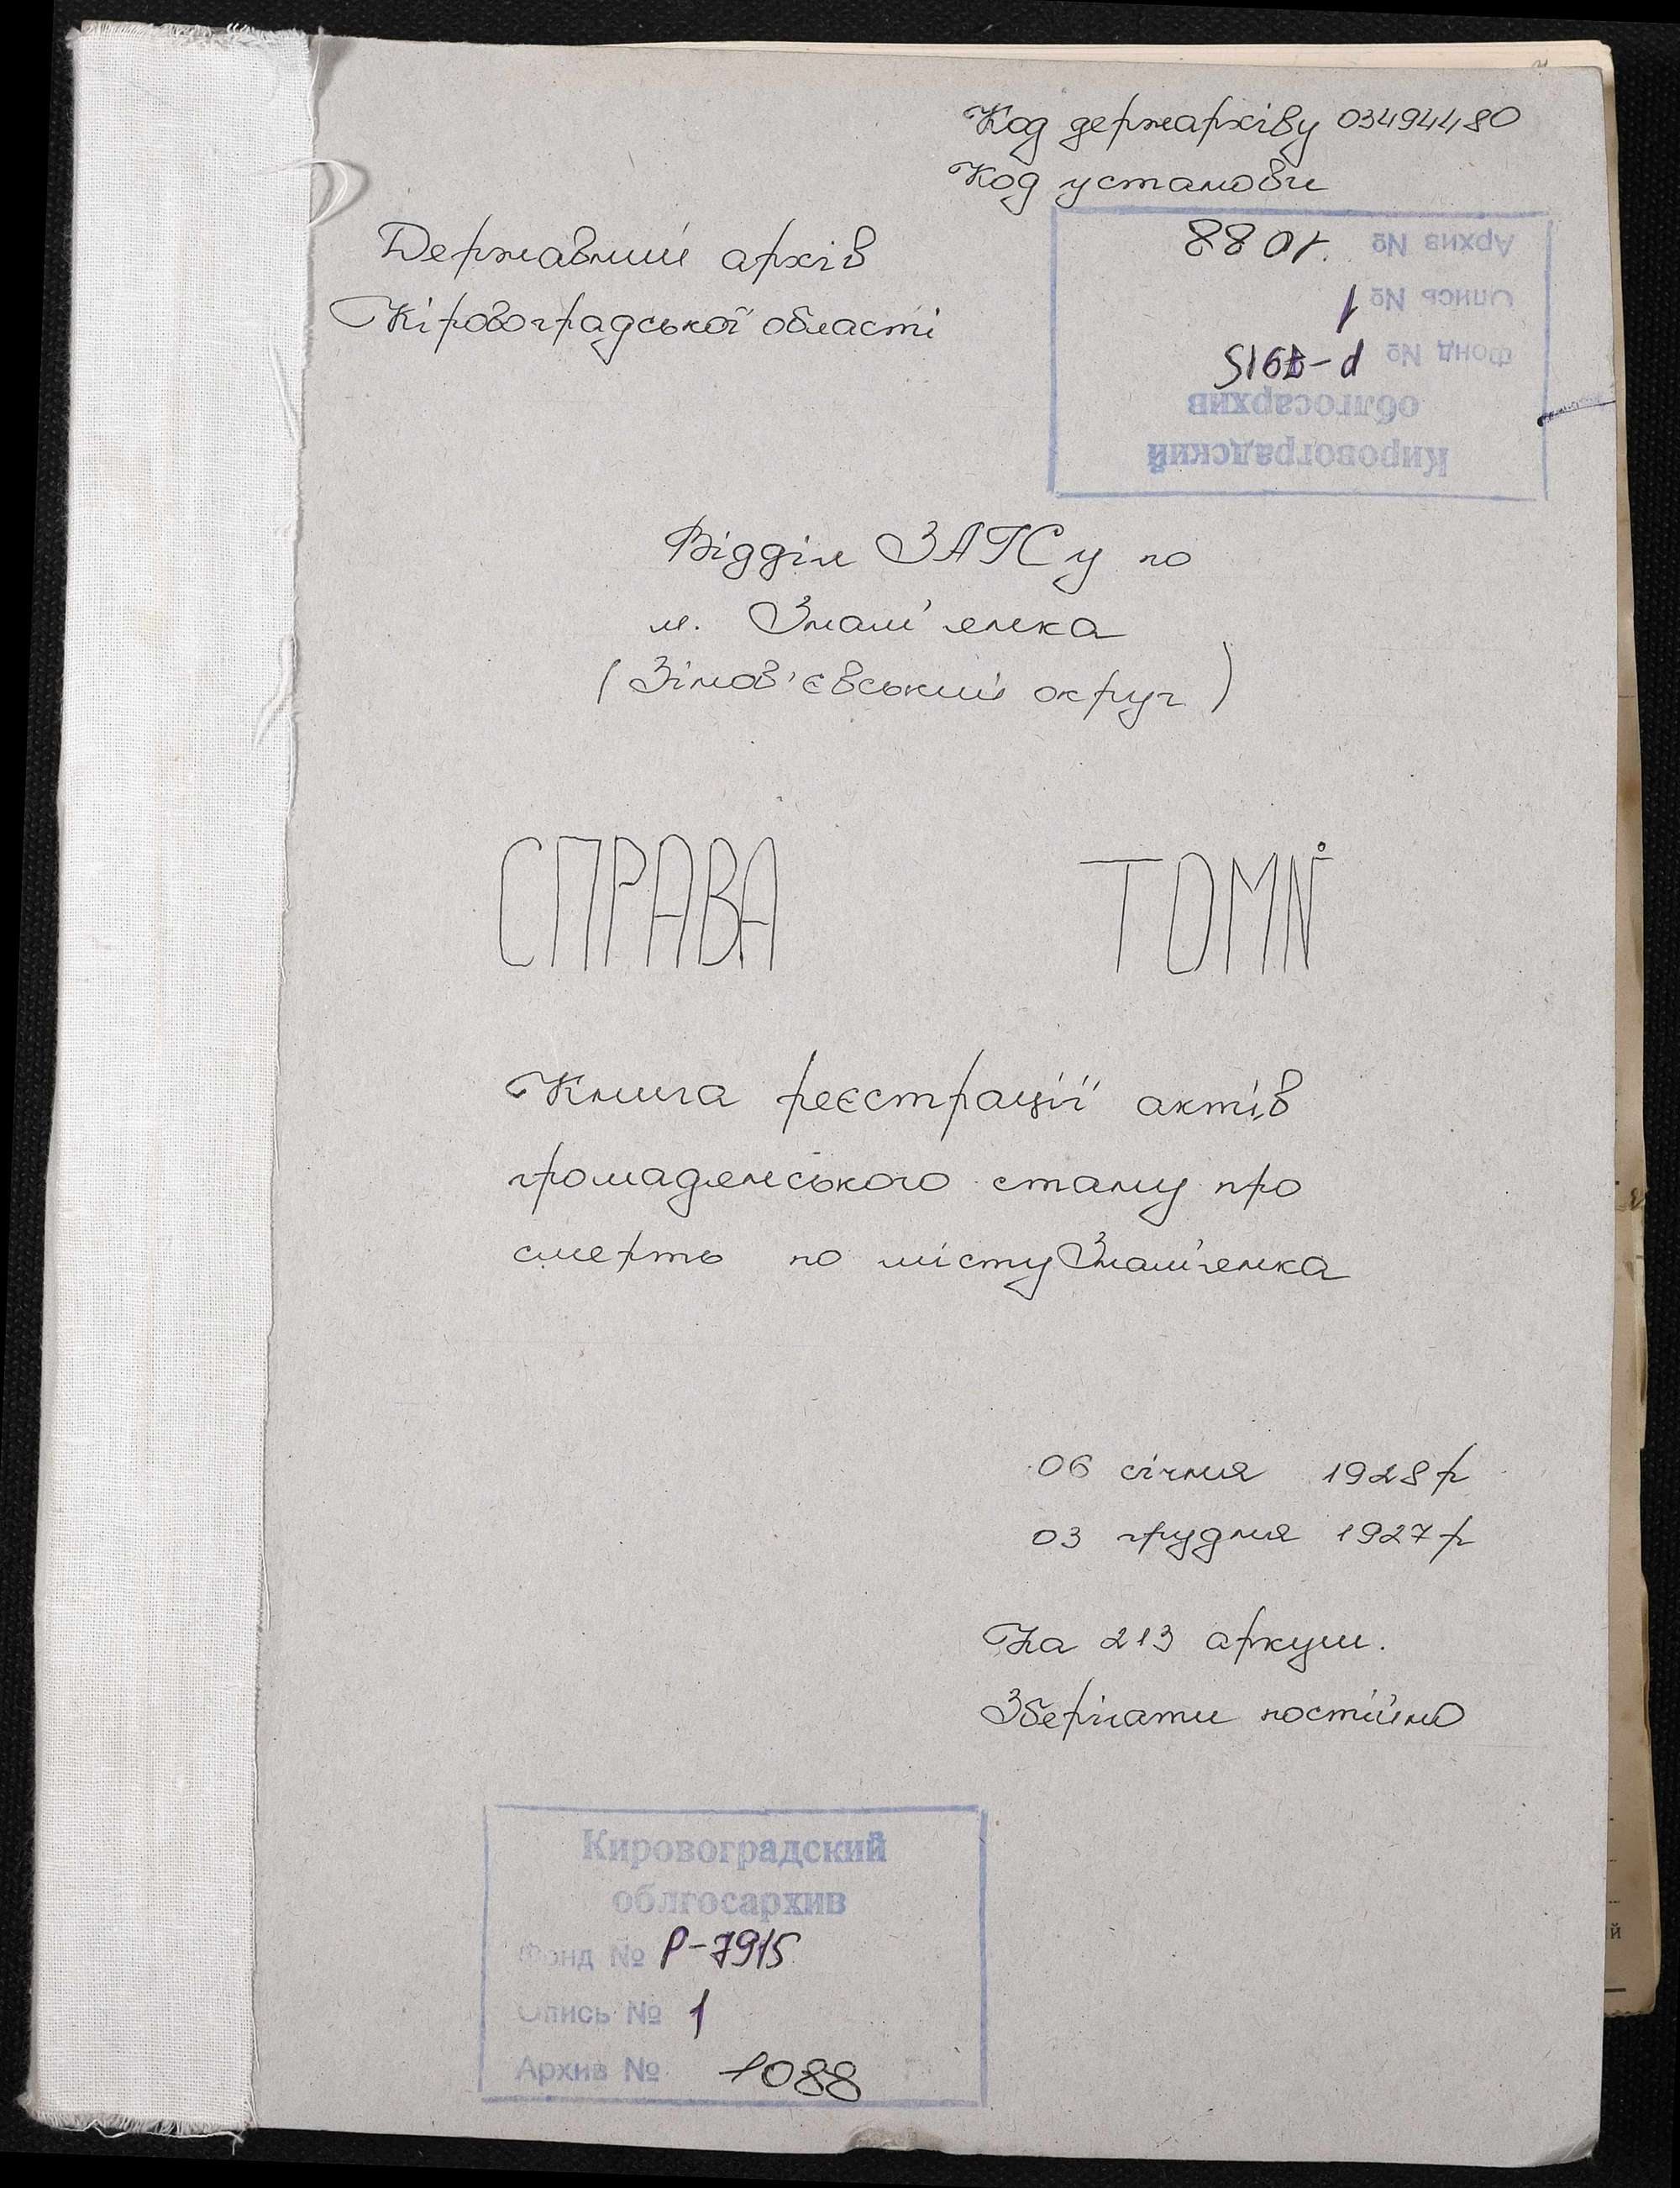 Код держархіву 03494480
Код установи
Державний архів
Кіровоградської області
Кировоградский
облгосархив
Фонд № Р-7915
Опись № 1
Архив № 1088
Відділ ЗАГСу по
м. Знам'янка
(Зінов'євський округ)
СПРАВА ТОМ№
Книга реєстрації актів
громадянського стану про
смерть по місту Знам'янка
06 січня 1928р
03 грудня 1927р
На 213 аркуш.
Зберігати постійно
Кировоградский
облгосархив
Фонд № Р-7915
Опись № 1
Архив № 1088